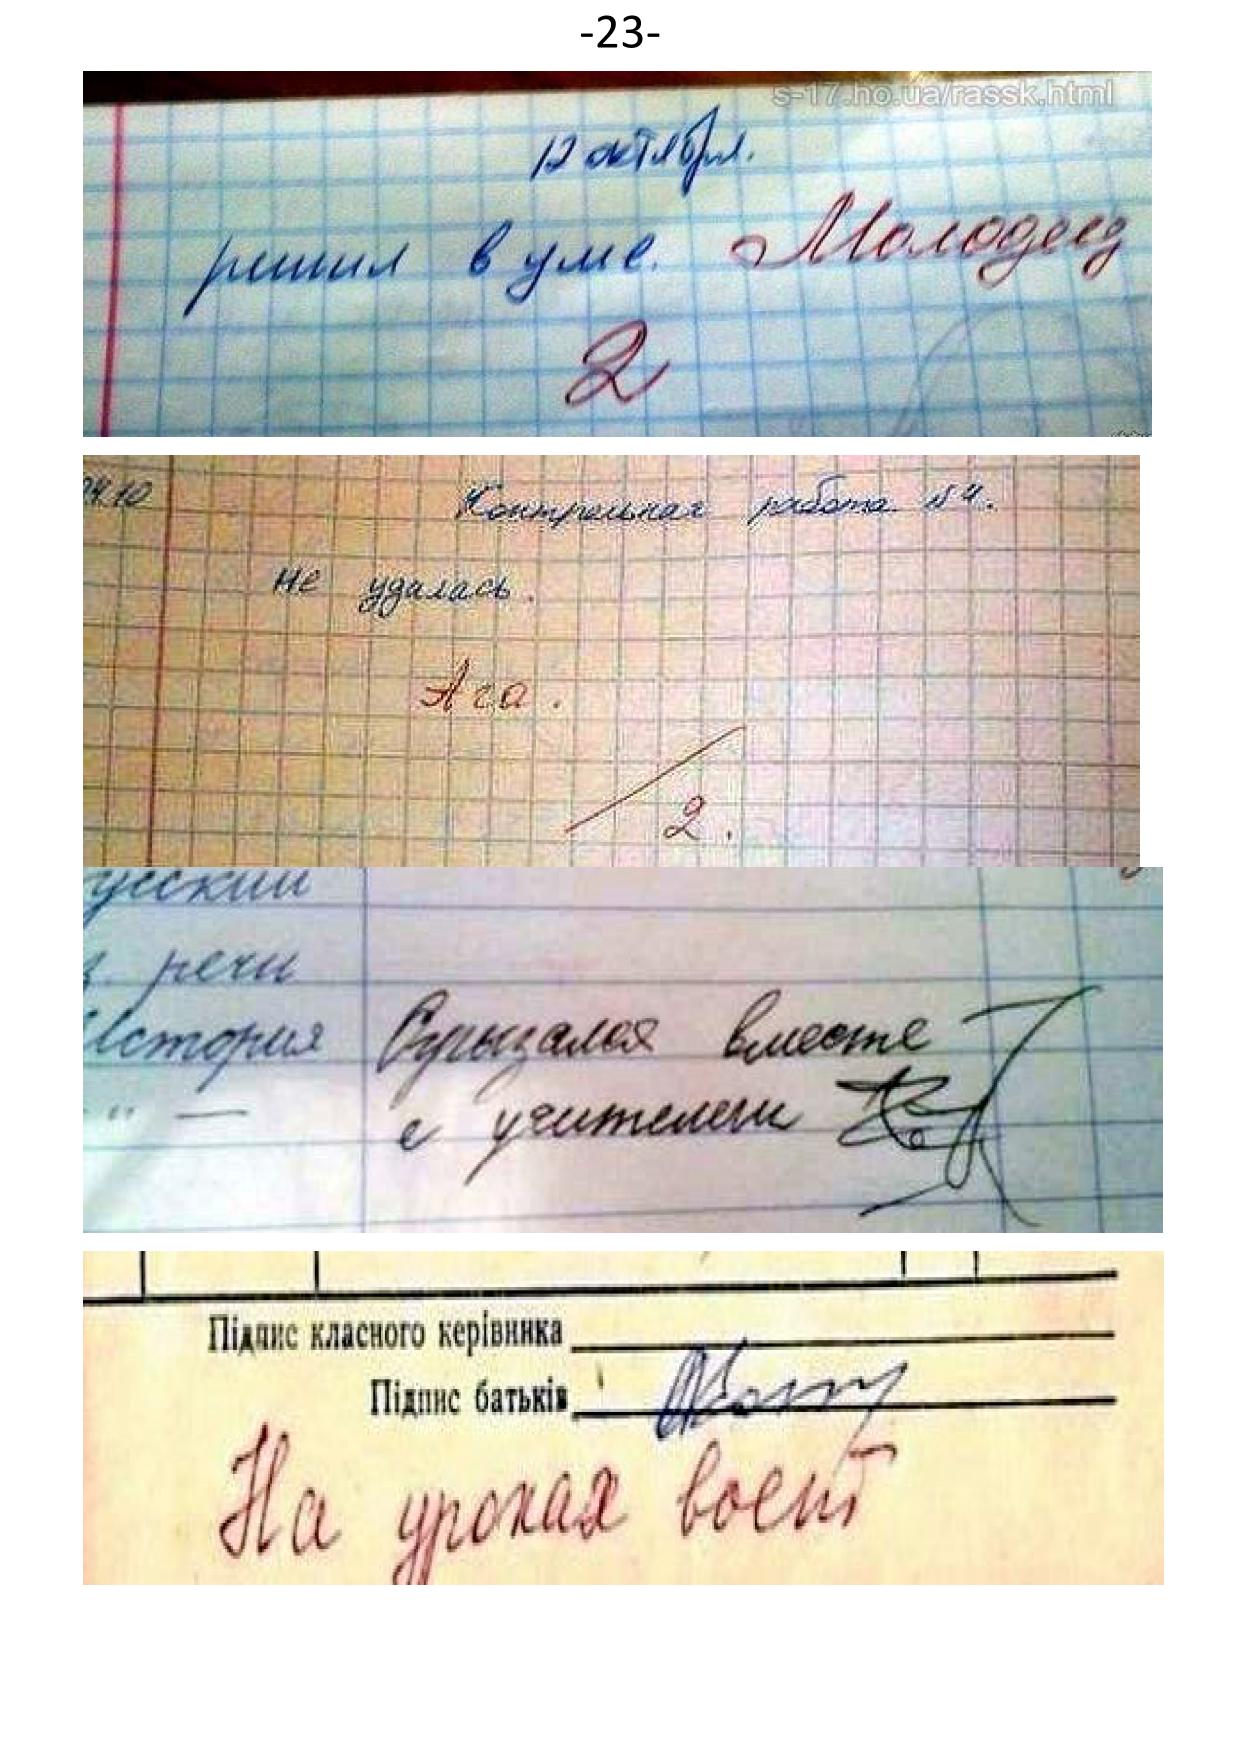 -23-
s-17.ho.ua/rassk.html
12 октября.
решил в уме. Молодец
2
24.10 Контрольная работа №4.
не удалась.
Ага.
2.
усский
речи
История Огрызался вместе
" — с учителем
Підпис класного керівника
Підпис батьків
На уроках воет